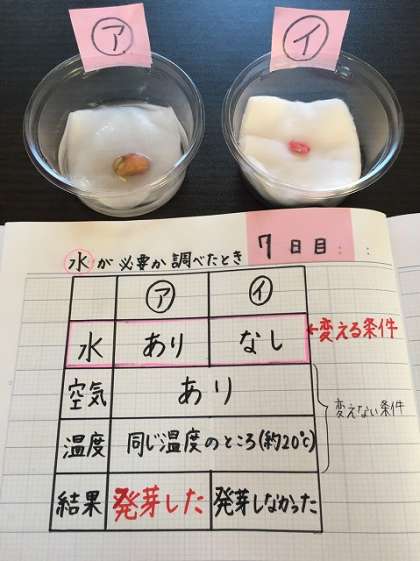 ア イ
水が必要か調べたとき 7日目
ア イ
水 あり なし ←変える条件
空気 あり
変えない条件
温度 同じ温度のところ(約20℃)
結果 発芽した 発芽しなかった